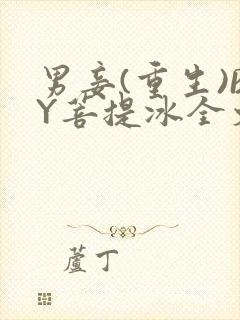 男妾(重生)B
Y菩提冰全文
蘆丁